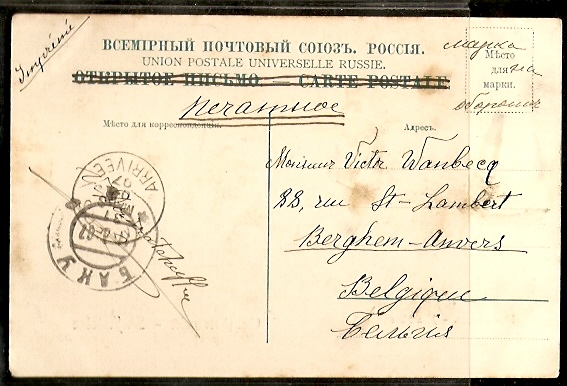 Imprimé
ВСЕМІРНЫЙ ПОЧТОВЫЙ СОЮЗЪ. РОССІЯ.
UNION POSTALE UNIVERSELLE RUSSIE.
ОТКРЫТОЕ ПИСЬМО. — CARTE POSTALE
Печатное
марка
на
обороте
Мѣсто
для
марки.
Мѣсто для корреспонденціи.
Адресъ.
Monsieur Victor Wanbecq
88, rue St-Lambert
Berghem-Anvers
Belgique
Бельгія
ARRIVÉE
БАКУ